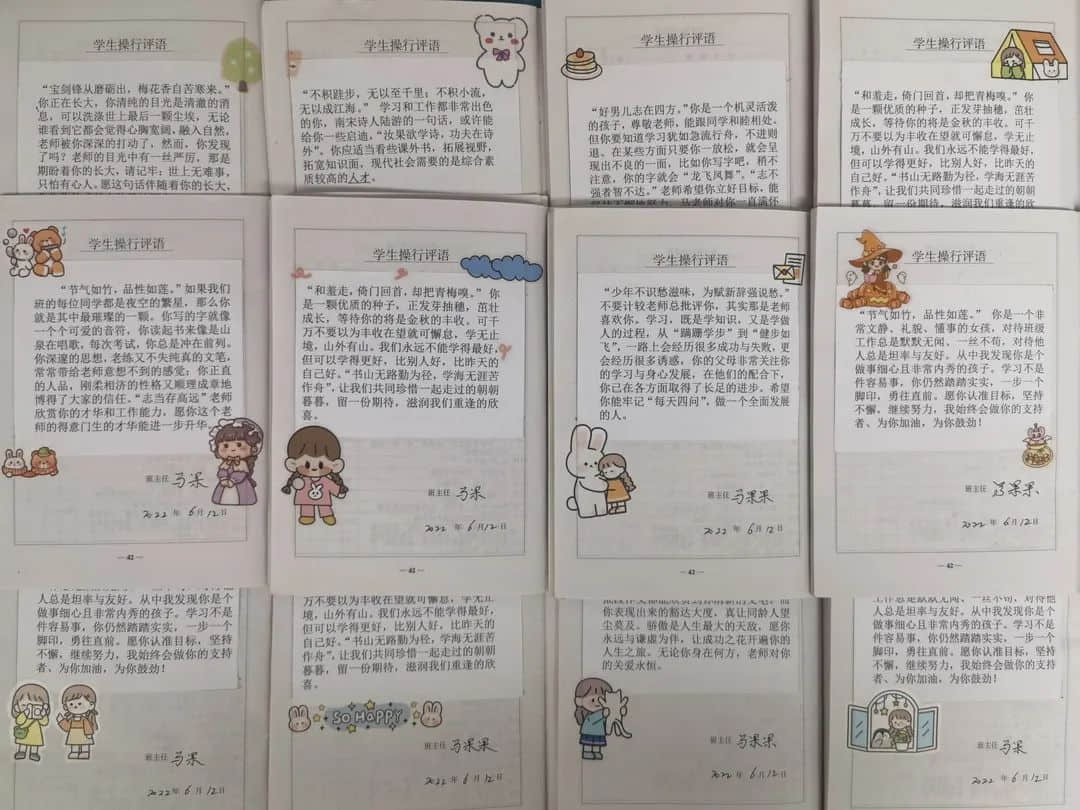 学生操行评语
“宝剑锋从磨砺出，梅花香自苦寒来。”
你正在长大，你清纯的目光是清澈的消
息，可以洗涤世上最后一颗尘埃，无论
谁看到它都会觉得心胸宽阔，融入自然，
老师被你深深的打动了，然而，你发现
了吗？老师的目光中有一丝严厉，那是
期盼着你的长大，请记牢：世上无难事，
只怕有心人。愿这句话伴随着你的长大，
学生操行评语
“不积跬步，无以至千里；不积小流，
无以成江海。” 学习和工作都非常出色
的你，南宋诗人陆游的一句话，或许能
给你一些启迪，“汝果欲学诗，功夫在诗
外”。你应适当看些课外书，拓展视野，
拓宽知识面，现代社会需要的是综合素
质较高的人才。
学生操行评语
“好男儿志在四方。”你是一个机灵活泼
的孩子，尊敬老师，能跟同学和睦相处。
但你要知道学习犹如急流行舟，不进则
退。在某些方面只要你一放松，就会呈
现出不良的一面，比如你写字吧，稍不
注意，你的字就会“龙飞凤舞”。“志不
强者智不达。”老师希望你立好目标，能
学生操行评语
“和羞走，倚门回首，却把青梅嗅。”你
是一颗优质的种子，正发芽抽穗，茁壮
成长，等待你的将是金秋的丰收。可千
万不要以为丰收在望就可懈怠，学无止
境，山外有山。我们永远不能学得最好，
但可以学得更好，比别人好，比昨天的
自己好。“书山无路勤为径，学海无涯苦
作舟”，让我们共同珍惜一起走过的朝朝
暮暮，留一份期待，滋润我们重逢的欣
学生操行评语
“节气如竹，品性如莲。”如果我们
班的每位同学都是夜空的繁星，那么你
就是其中最璀璨的一颗。你写的字就像
一个个可爱的音符，你读起书来像是山
泉在唱歌，每次考试，你总是冲在前列。
你深邃的思想，老练又不失纯真的文笔，
常常带给老师意想不到的感觉；你正直
的人品，刚柔相济的性格又顺理成章地
博得了大家的信任。“志当存高远”老师
欣赏你的才华和工作能力，愿你这个老
师的得意门生的才华能进一步升华。
班主任 马果
2022 年 6 月 12 日
— 42 —
学生操行评语
“和羞走，倚门回首，却把青梅嗅。” 你
是一颗优质的种子，正发芽抽穗，茁壮
成长，等待你的将是金秋的丰收。可千
万不要以为丰收在望就可懈怠，学无止
境，山外有山。我们永远不能学得最好，
但可以学得更好，比别人好，比昨天的
自己好。“书山无路勤为径，学海无涯苦
作舟”，让我们共同珍惜一起走过的朝朝
暮暮，留一份期待，滋润我们重逢的欣
喜。
班主任 马果
2022 年 6 月 12 日
— 42 —
学生操行评语
“少年不识愁滋味，为赋新辞强说愁。”
不要计较老师总批评你，其实那是老师
喜欢你。学习，既是学知识，又是学做
人的过程，从“蹒跚学步”到“健步如
飞”，一路上会经历很多成功与失败，更
会经历很多诱惑，你的父母非常关注你
的学习与身心发展，在他们的配合下，
你已在各方面取得了长足的进步。希望
你能牢记“每天四问”，做一个全面发展
的人。
班主任 马果果
2022 年 6 月 12 日
— 42 —
学生操行评语
“节气如竹，品性如莲。” 你是一个非
常文静、礼貌、懂事的女孩，对待班级
工作总是默默无闻、一丝不苟，对待他
人总是坦率与友好。从中我发现你是个
做事细心且非常内秀的孩子。学习不是
件容易事，你仍然踏踏实实，一步一个
脚印，勇往直前。愿你认准目标，坚持
不懈，继续努力，我始终会做你的支持
者、为你加油，为你鼓劲！
班主任 马果果
2022 年 6 月 12 日
— 42 —
人总是坦率与友好。从中我发现你是个
做事细心且非常内秀的孩子。学习不是
件容易事，你仍然踏踏实实，一步一个
脚印，勇往直前。愿你认准目标，坚持
不懈，继续努力，我始终会做你的支持
者、为你加油，为你鼓劲！
班主任 马果
2022 年 6 月 12 日
万不要以为丰收在望就可懈怠，学无止
境，山外有山。我们永远不能学得最好，
但可以学得更好，比别人好，比昨天的
自己好。“书山无路勤为径，学海无涯苦
作舟”，让我们共同珍惜一起走过的朝朝
暮暮，留一份期待，滋润我们重逢的欣
喜。
SO HAPPY
班主任 马果果
2022 年 6 月 12 日
你表现出来的豁达大度，真让同龄人望
尘莫及。骄傲是人生最大的天敌。愿你
永远与谦虚为伴，让成功之花开遍你的
人生之旅。无论你身在何方，老师对你
的关爱永恒。
班主任 马果果
2022 年 6 月 12 日
工作总是默默无闻、一丝不苟，对待他
人总是坦率与友好。从中我发现你是个
做事细心且非常内秀的孩子。学习不是
件容易事，你仍然踏踏实实，一步一个
脚印，勇往直前。愿你认准目标，坚持
不懈，继续努力，我始终会做你的支持
者、为你加油，为你鼓劲！
班主任 马果
2022 年 6 月 12 日